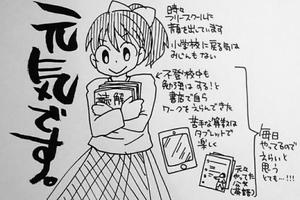 元気です。
時々
フリースクールに
顔を出しています
小学校に戻る気は
みじんもない
不登校中も
勉強は する!と
書店で自ら
ワークをえらんできた
苦手な算数は
タブレットで
楽しく
読解
元々
やってた
公文
(英語)
毎日
やってるので
えらいと
思う
とても…!!!